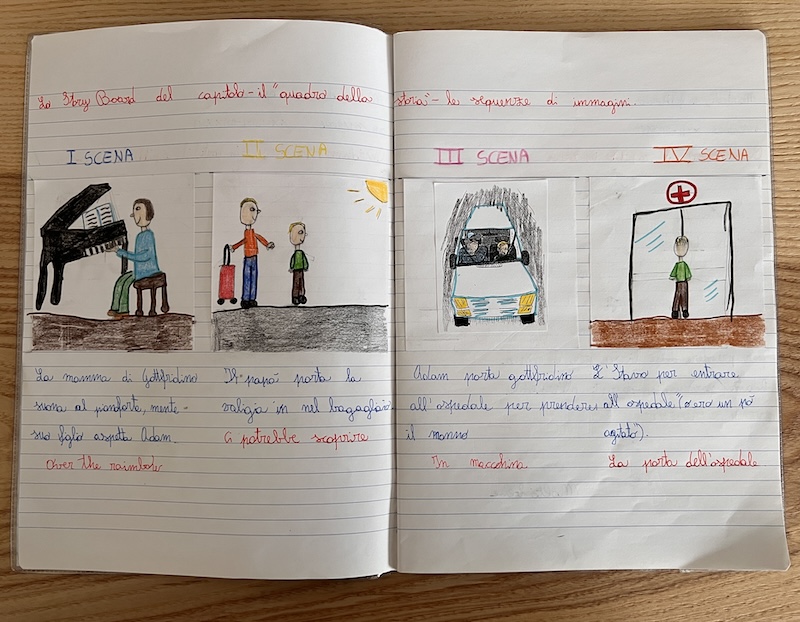 Lo Story Board del capitolo - il "quadro della storia" - le sequenze di immagini.
I SCENA
II SCENA
III SCENA
IV SCENA
La mamma di Gottfridino
suona al pianforte, mente-
suo figlo aspetta Adam.
Over the raimbow
Il "papà" porta la
valigia in nel bagagliaio
ci potrebbe scoprire
Adam porta gottfridino
all'ospedale per prendere
il nonno
In macchina
L' Stavo per entrare
all ospedale" (ero un pò
agitato").
La porta dell'ospedale